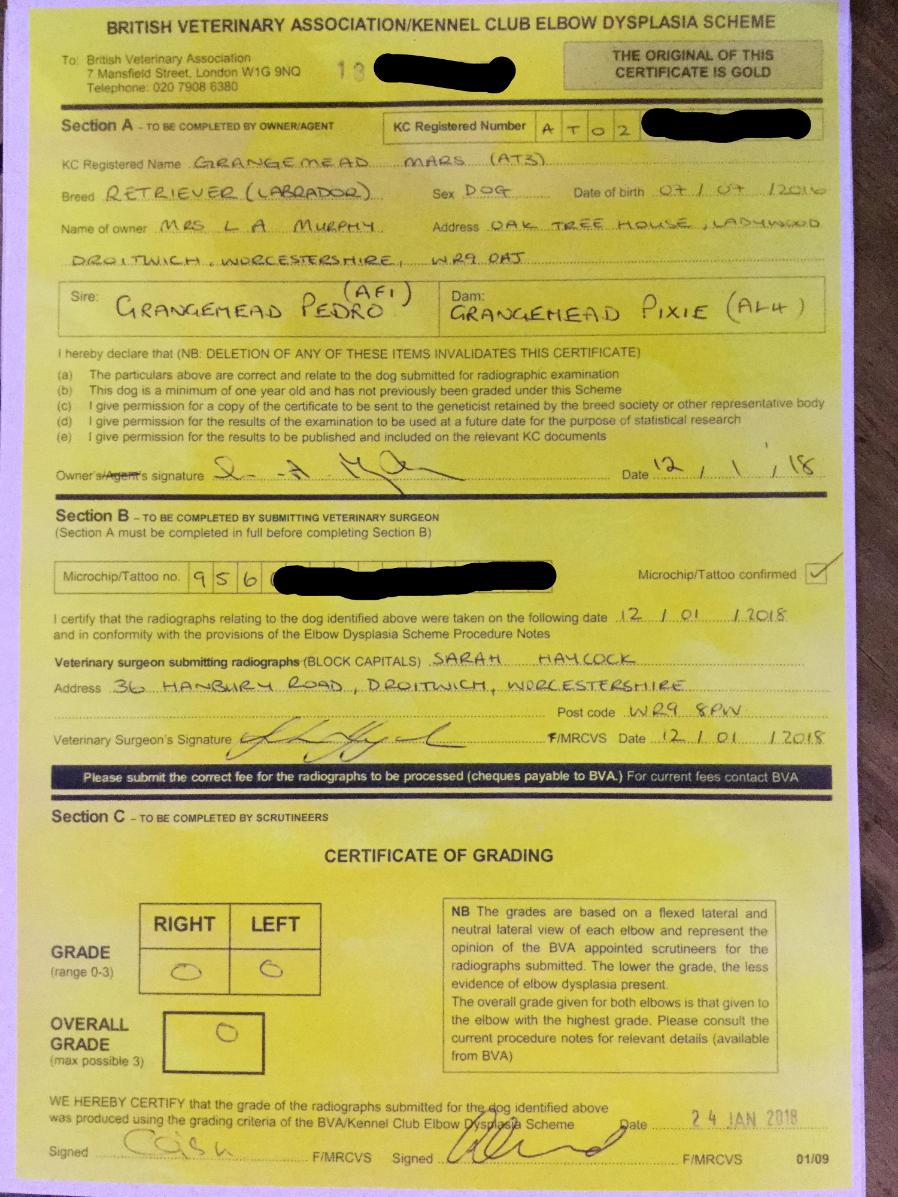 BRITISH VETERINARY ASSOCIATION/KENNEL CLUB ELBOW DYSPLASIA SCHEME
To: British Veterinary Association
7 Mansfield Street, London W1G 9NQ
Telephone: 020 7908 6380
13
THE ORIGINAL OF THIS
CERTIFICATE IS GOLD
Section A - TO BE COMPLETED BY OWNER/AGENT
KC Registered Number A T 0 2
KC Registered Name GRANGEMEAD MARS (AT3)
Breed RETRIEVER (LABRADOR) Sex DOG Date of birth 07 / 07 / 2016
Name of owner MRS L A MURPHY Address OAK TREE HOUSE, LADYWOOD
DROITWICH, WORCESTERSHIRE, WR9 0AJ
Sire: GRANGEMEAD PEDRO (AF1) Dam: GRANGEMEAD PIXIE (AL4)
I hereby declare that (NB: DELETION OF ANY OF THESE ITEMS INVALIDATES THIS CERTIFICATE)
(a) The particulars above are correct and relate to the dog submitted for radiographic examination
(b) This dog is a minimum of one year old and has not previously been graded under this Scheme
(c) I give permission for a copy of the certificate to be sent to the geneticist retained by the breed society or other representative body
(d) I give permission for the results of the examination to be used at a future date for the purpose of statistical research
(e) I give permission for the results to be published and included on the relevant KC documents
Owner's/Agent's signature Date 12 / 1 / 18
Section B - TO BE COMPLETED BY SUBMITTING VETERINARY SURGEON
(Section A must be completed in full before completing Section B)
Microchip/Tattoo no. 9 5 6 Microchip/Tattoo confirmed ✓
I certify that the radiographs relating to the dog identified above were taken on the following date 12 / 01 / 2018
and in conformity with the provisions of the Elbow Dysplasia Scheme Procedure Notes
Veterinary surgeon submitting radiographs (BLOCK CAPITALS) SARAH HAYCOCK
Address 36 HANBURY ROAD, DROITWICH, WORCESTERSHIRE
Post code WR9 8PW
Veterinary Surgeon's Signature F/MRCVS Date 12 / 01 / 2018
Please submit the correct fee for the radiographs to be processed (cheques payable to BVA.) For current fees contact BVA
Section C - TO BE COMPLETED BY SCRUTINEERS
CERTIFICATE OF GRADING
RIGHT LEFT
GRADE
(range 0-3) 0 0
OVERALL
GRADE
(max possible 3) 0
NB The grades are based on a flexed lateral and
neutral lateral view of each elbow and represent the
opinion of the BVA appointed scrutineers for the
radiographs submitted. The lower the grade, the less
evidence of elbow dysplasia present.
The overall grade given for both elbows is that given to
the elbow with the highest grade. Please consult the
current procedure notes for relevant details (available
from BVA)
WE HEREBY CERTIFY that the grade of the radiographs submitted for the dog identified above
was produced using the grading criteria of the BVA/Kennel Club Elbow Dysplasia Scheme Date 24 JAN 2018
Signed F/MRCVS Signed F/MRCVS 01/09